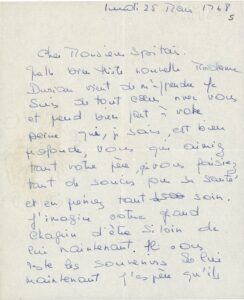 lundi 25 Mars 1968
5
Cher Monsieur Spitaï.
Quelle bien triste nouvelle Madame
Durian vient de m'apprendre Je
suis de tout cœur avec vous
et prend bien part à votre
peine qui, je sais, est bien
profonde, vous qui aimiez
tant votre père, qui vous faisiez
tant de soucis pour sa santé
et en preniez tant soin.
J'imagine votre grand
chagin d'être si loin de
lui maintenant. Il vous
reste les souvenirs de lui
maintenant j'espère qu'ils